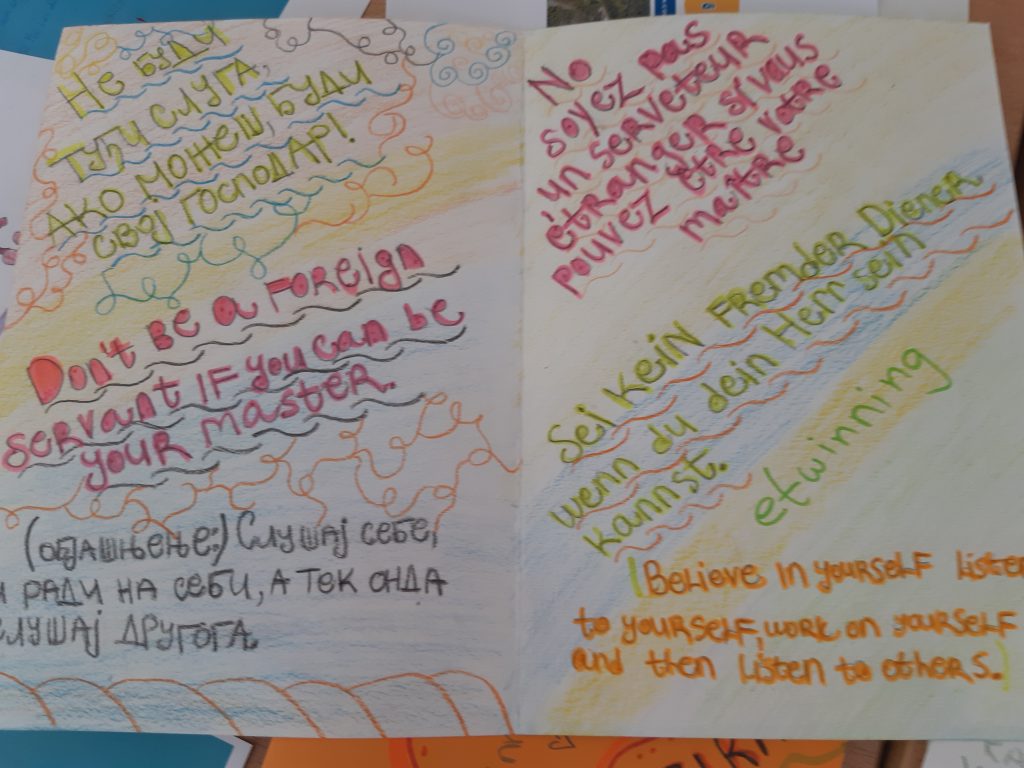 Не буди
туђи слуга,
ако можеш, буди
свој господар!
Don't be a foreign
servant if you can be
your master.
(објашњење:) Слушај себе,
и ради на себи, а тек онда
слушај другога
No
soyez pas
un serveteur
étranger si vaus
pouvez être votre
maître
Sei kein Fremder Diener
wenn du dein Herr sein
kannst.
etwinning
Believe in yourself Listen
to yourself, work on yourself
and then listen to others.